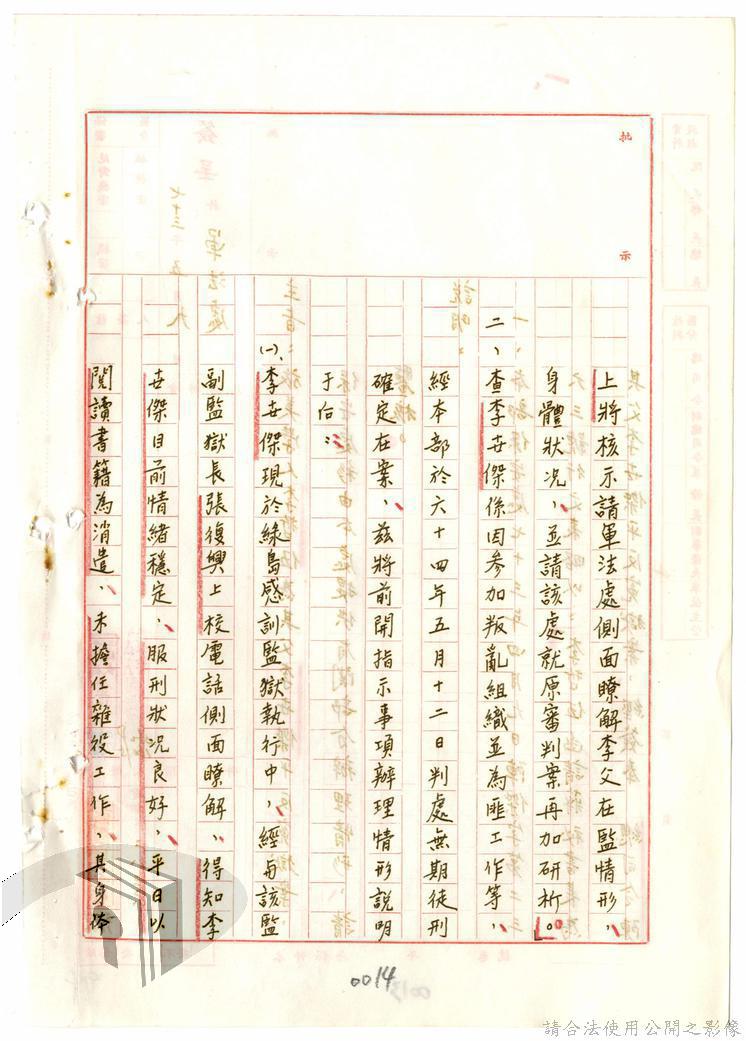 批示
上將核示請軍法處側面瞭解李父在監情形、
身體狀況、並請該處就原審判案再加研析。
二、查李世傑係因參加叛亂組織並為匪工作等、
經本部於六十四年五月十二日判處無期徒刑
確定在案、茲將前開指示事項辦理情形說明
于后：
㈠、李世傑現於綠島感訓監獄執行中、經與該監
副監獄長張復興上校電話側面瞭解、得知李
世傑目前情緒穩定、服刑狀況良好、平日以
閱讀書籍為消遣、未擔任雜役工作、其身体
0014
請合法使用公開之影像